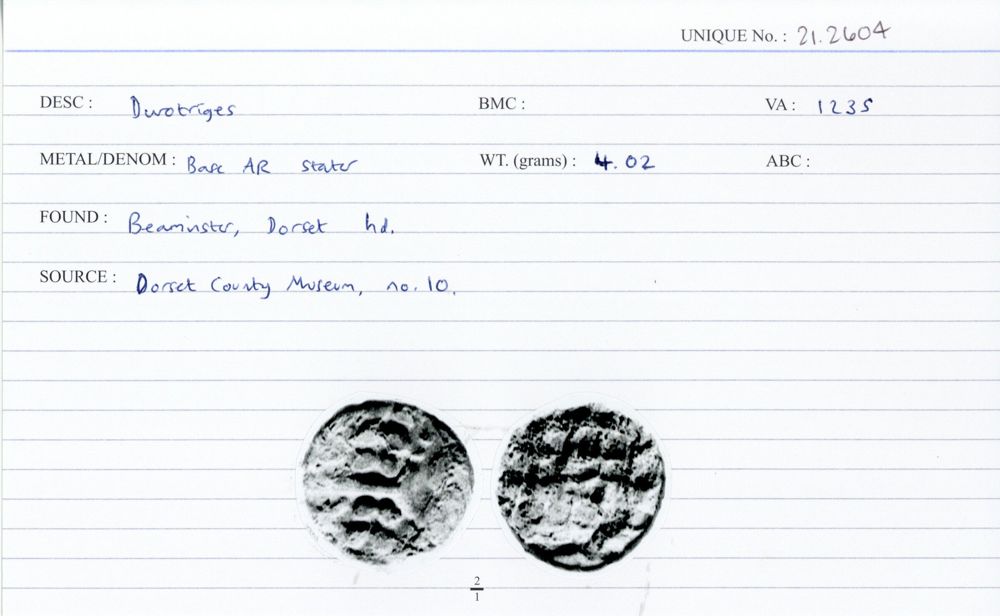 UNIQUE No. : 21.2604
DESC : Durotriges BMC : VA : 1235
METAL/DENOM : Base AR stater WT. (grams) : 4.02 ABC :
FOUND : Beaminster, Dorset hd.
SOURCE : Dorset County Museum, no. 10.
2
1